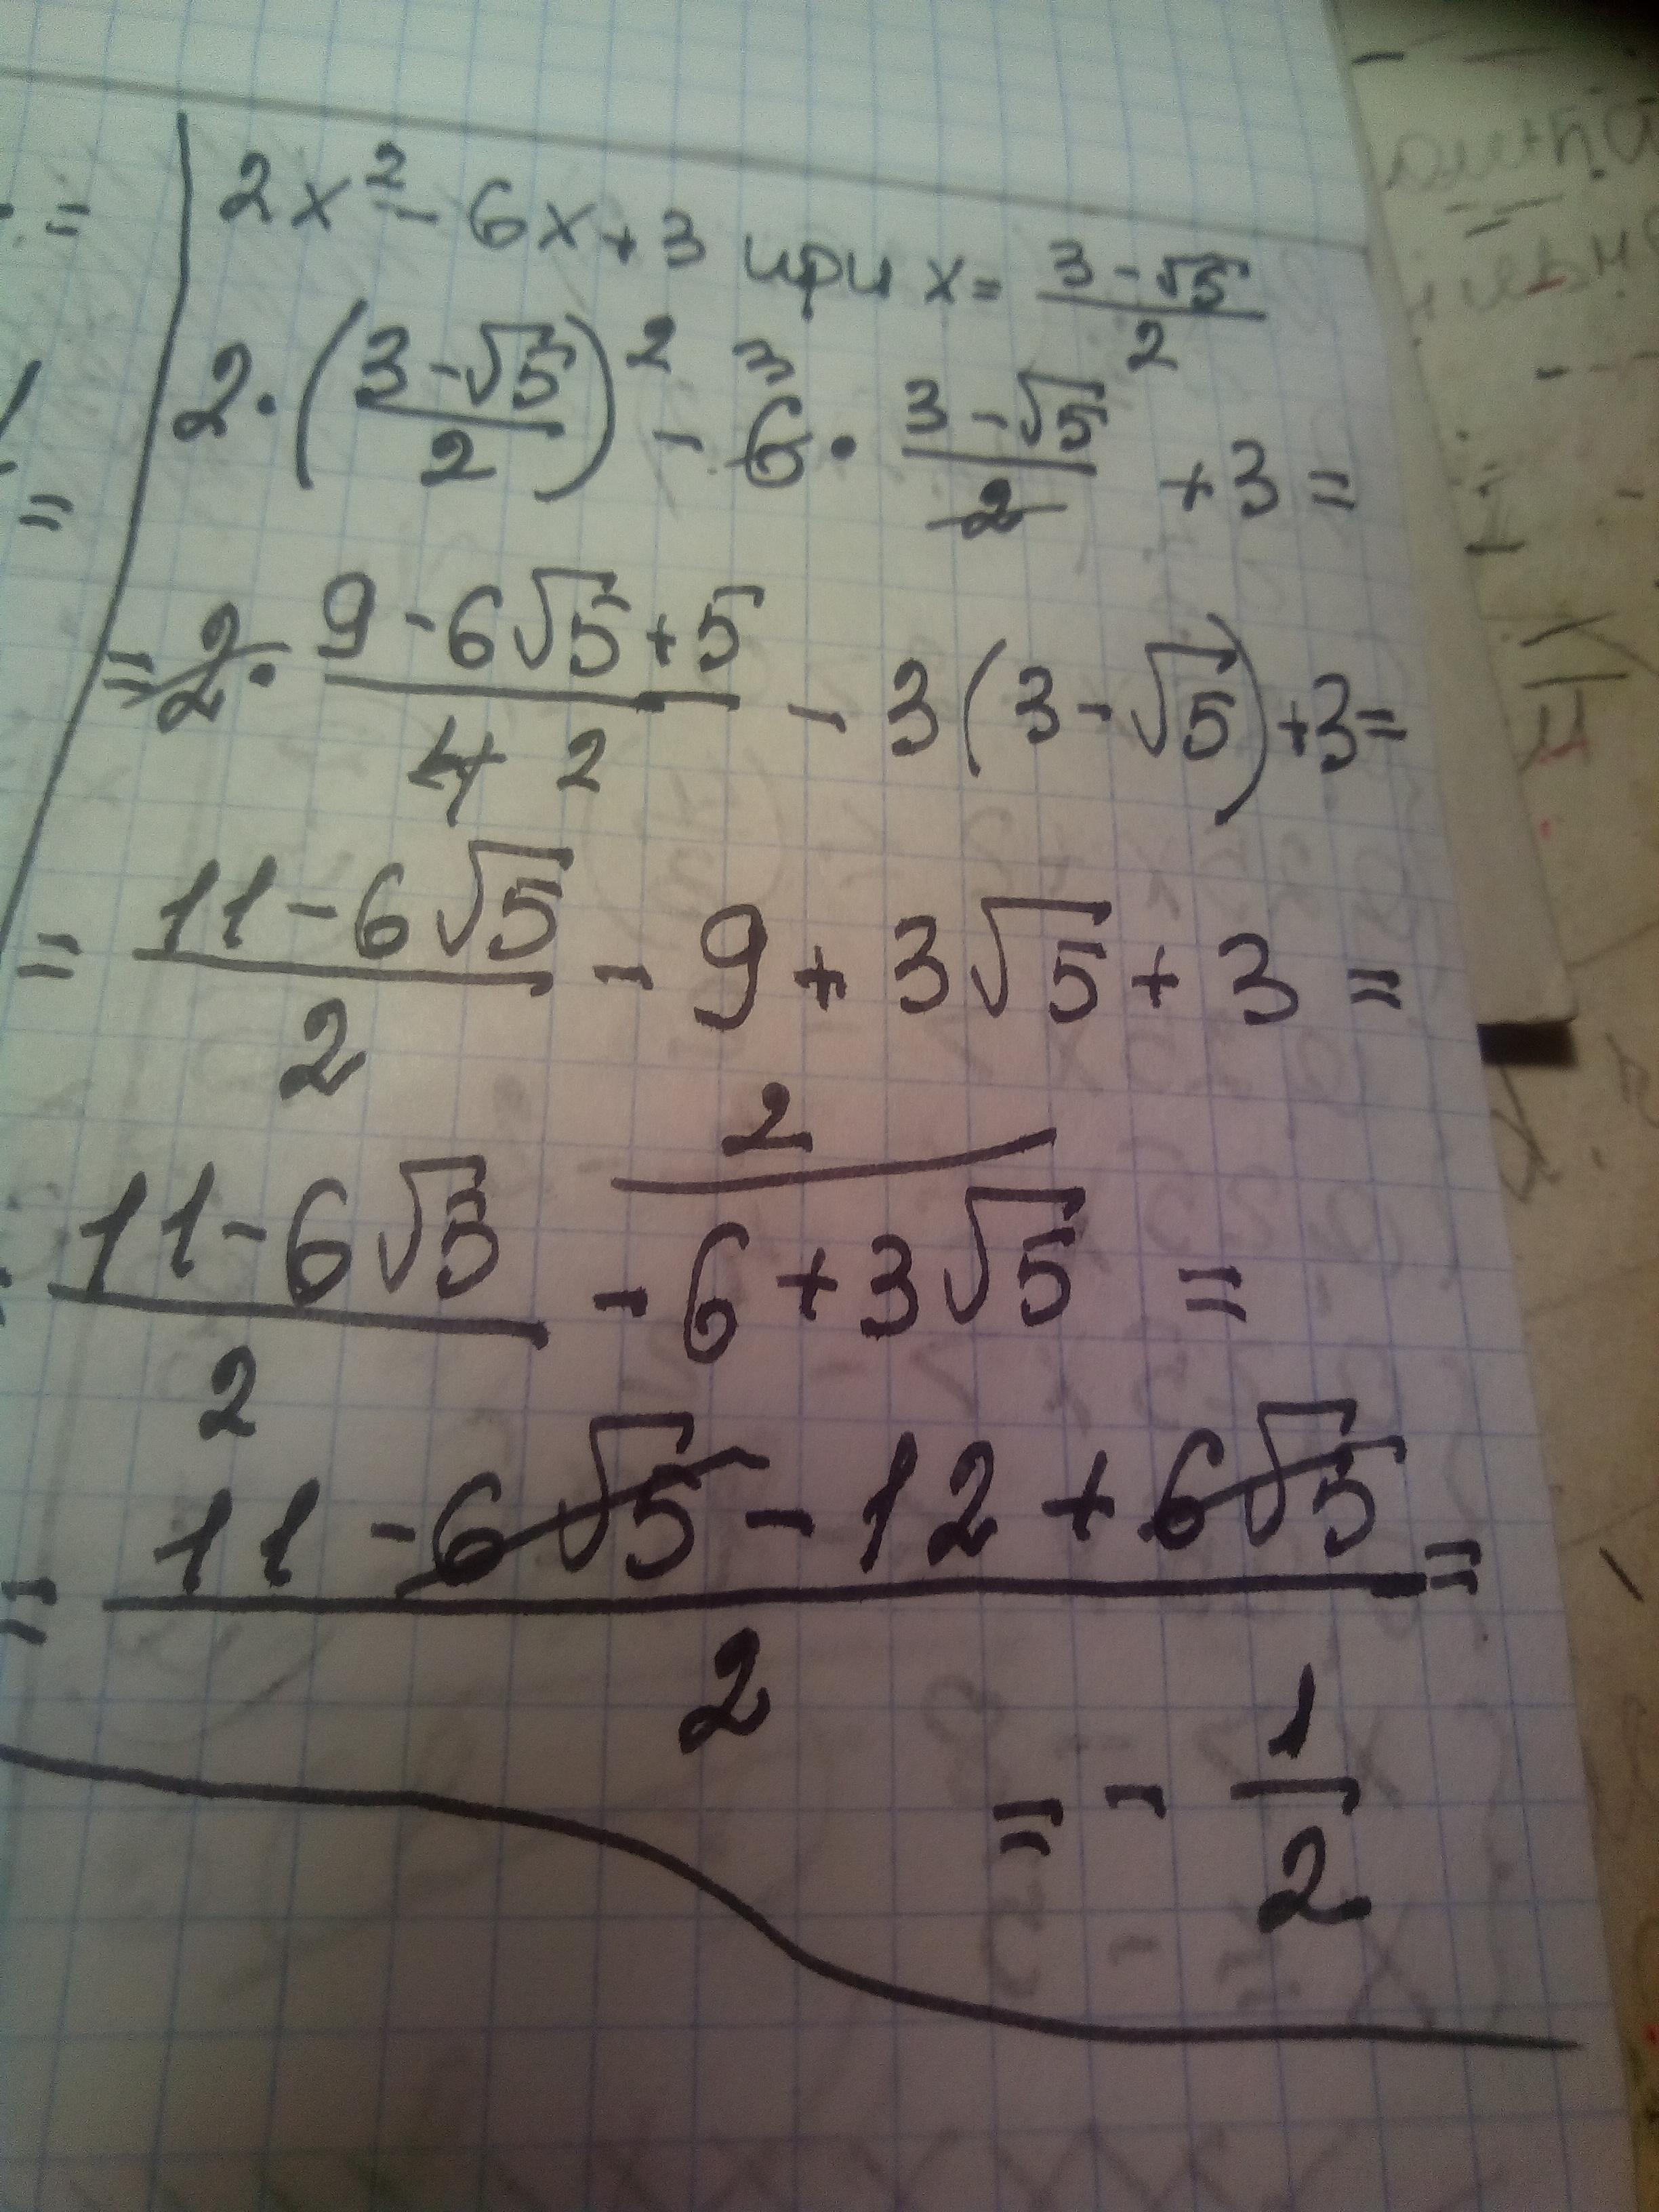 2x² - 6x + 3 при x = (3 - √5)/2
2 · ((3 - √5)/2)² - 6 3 · (3 - √5)/2 + 3 =
= 2 · (9 - 6√5 + 5)/(4 2) - 3(3 - √5) + 3 =
= (11 - 6√5)/2 - 9 + 3√5 + 3 =
2
(11 - 6√5)/2 - 6 + 3√5 =
= (11 - 6√5 - 12 + 6√5)/2 =
= - 1/2